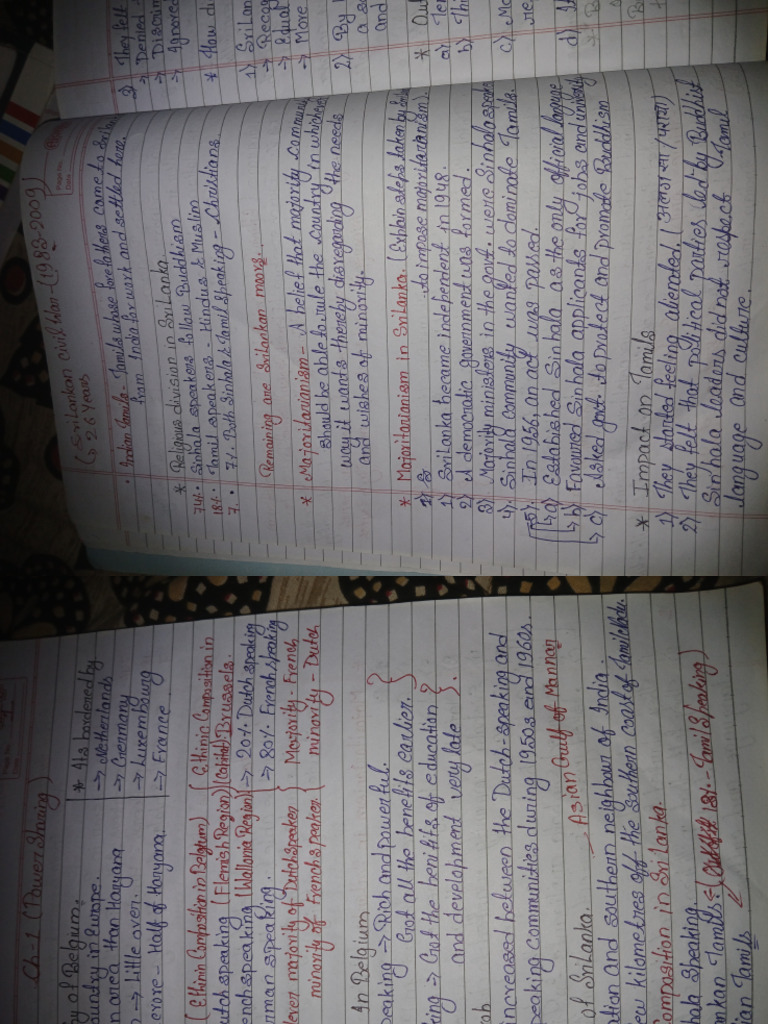 Ch-1 (Power Sharing)
y of Belgium.
ountry in Europe.
n area than Haryana
→ Little over.
erore - Half of Haryana.
* Its bordened by
→ Netherlands
→ Germany
→ Luxembourg
→ France
(Ethinin Composition in Belgium)
utch speaking (Flemish Region)
ench speaking (Wallonia Region)
rman speaking.
(Ethinic Composition in
(Capital) Brussels.
→ 20% Dutch speaking
→ 80% French speaking
majority of Dutch speaker
minority of French speaker.
Majority - French
minority - Dutch
In Belgium
peaking → Rich and powerful.
Got all the benefits earlier.
king → Got the benifits of education
and development very late
increased between the Dutch-speaking and
peaking communities during 1950s and 1960s.
of SriLanka.
ation and southern neighbour of India.
ew kilometres off the Southern coast of Tamil Nadu.
omposition in Sri Lanka.
hala Speaking.
nkan Tamils
18% - Tamil Speaking)
ian Tamils
(SriLankan civil War - (1983-2009)
↳ 26 Years
Page No.
Date
• Indian Tamils - Tamils whose forefathers came to
from India for work and settled here.
* Religious division in SriLanka.
74% • Sinhala speakers follow Buddhism
18% • Tamil speakers - Hindus & Muslim
7. • 7% Both Sinhala & Tamil Speaking - Christians.
Remaining are SriLankan moors.
* Majoritarianism - A belief that majority
should be able to rule the country in whichever
way it wants thereby disregarding the needs
and wishes of minority.
* Majoritarianism in SriLanka. (Explain steps taken by
to impose majoritarianism).
1) SriLanka became independent in 1948.
2) A democratic government was formed.
3) Majority ministers in the govt. were Sinhala
4) Sinhala community wanted to dominate Tamils.
5) In 1956, an act was passed.
↳ a) Established Sinhala as the only official language
↳ b) Favoured Sinhala applicants for jobs and
↳ c) Asked govt. to protect and promote Buddhism
* Impact on Tamils
1) They started feeling alienated.
2) They felt that political parties led by Buddhist
Sinhala leaders did not respect Tamil
language and culture.
3) They felt
→ Denied
→ Discrim
→ Ignored
* How di
1) SriLan
→ Recog
→ Equal
→ More
2) By
and
a)
b)
c)
d)